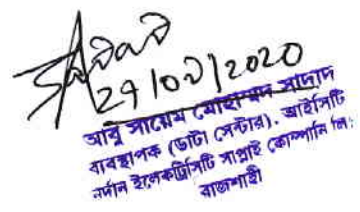 ২৭/০৯/২০২০
আবু সায়েম মোহাম্মদ সাদাদ
ব্যবস্থাপক (ডাটা সেন্টার). আইসিটি
নর্দান ইলেকট্রিসিটি সাপ্লাই কোম্পানি লি:
রাজশাহী